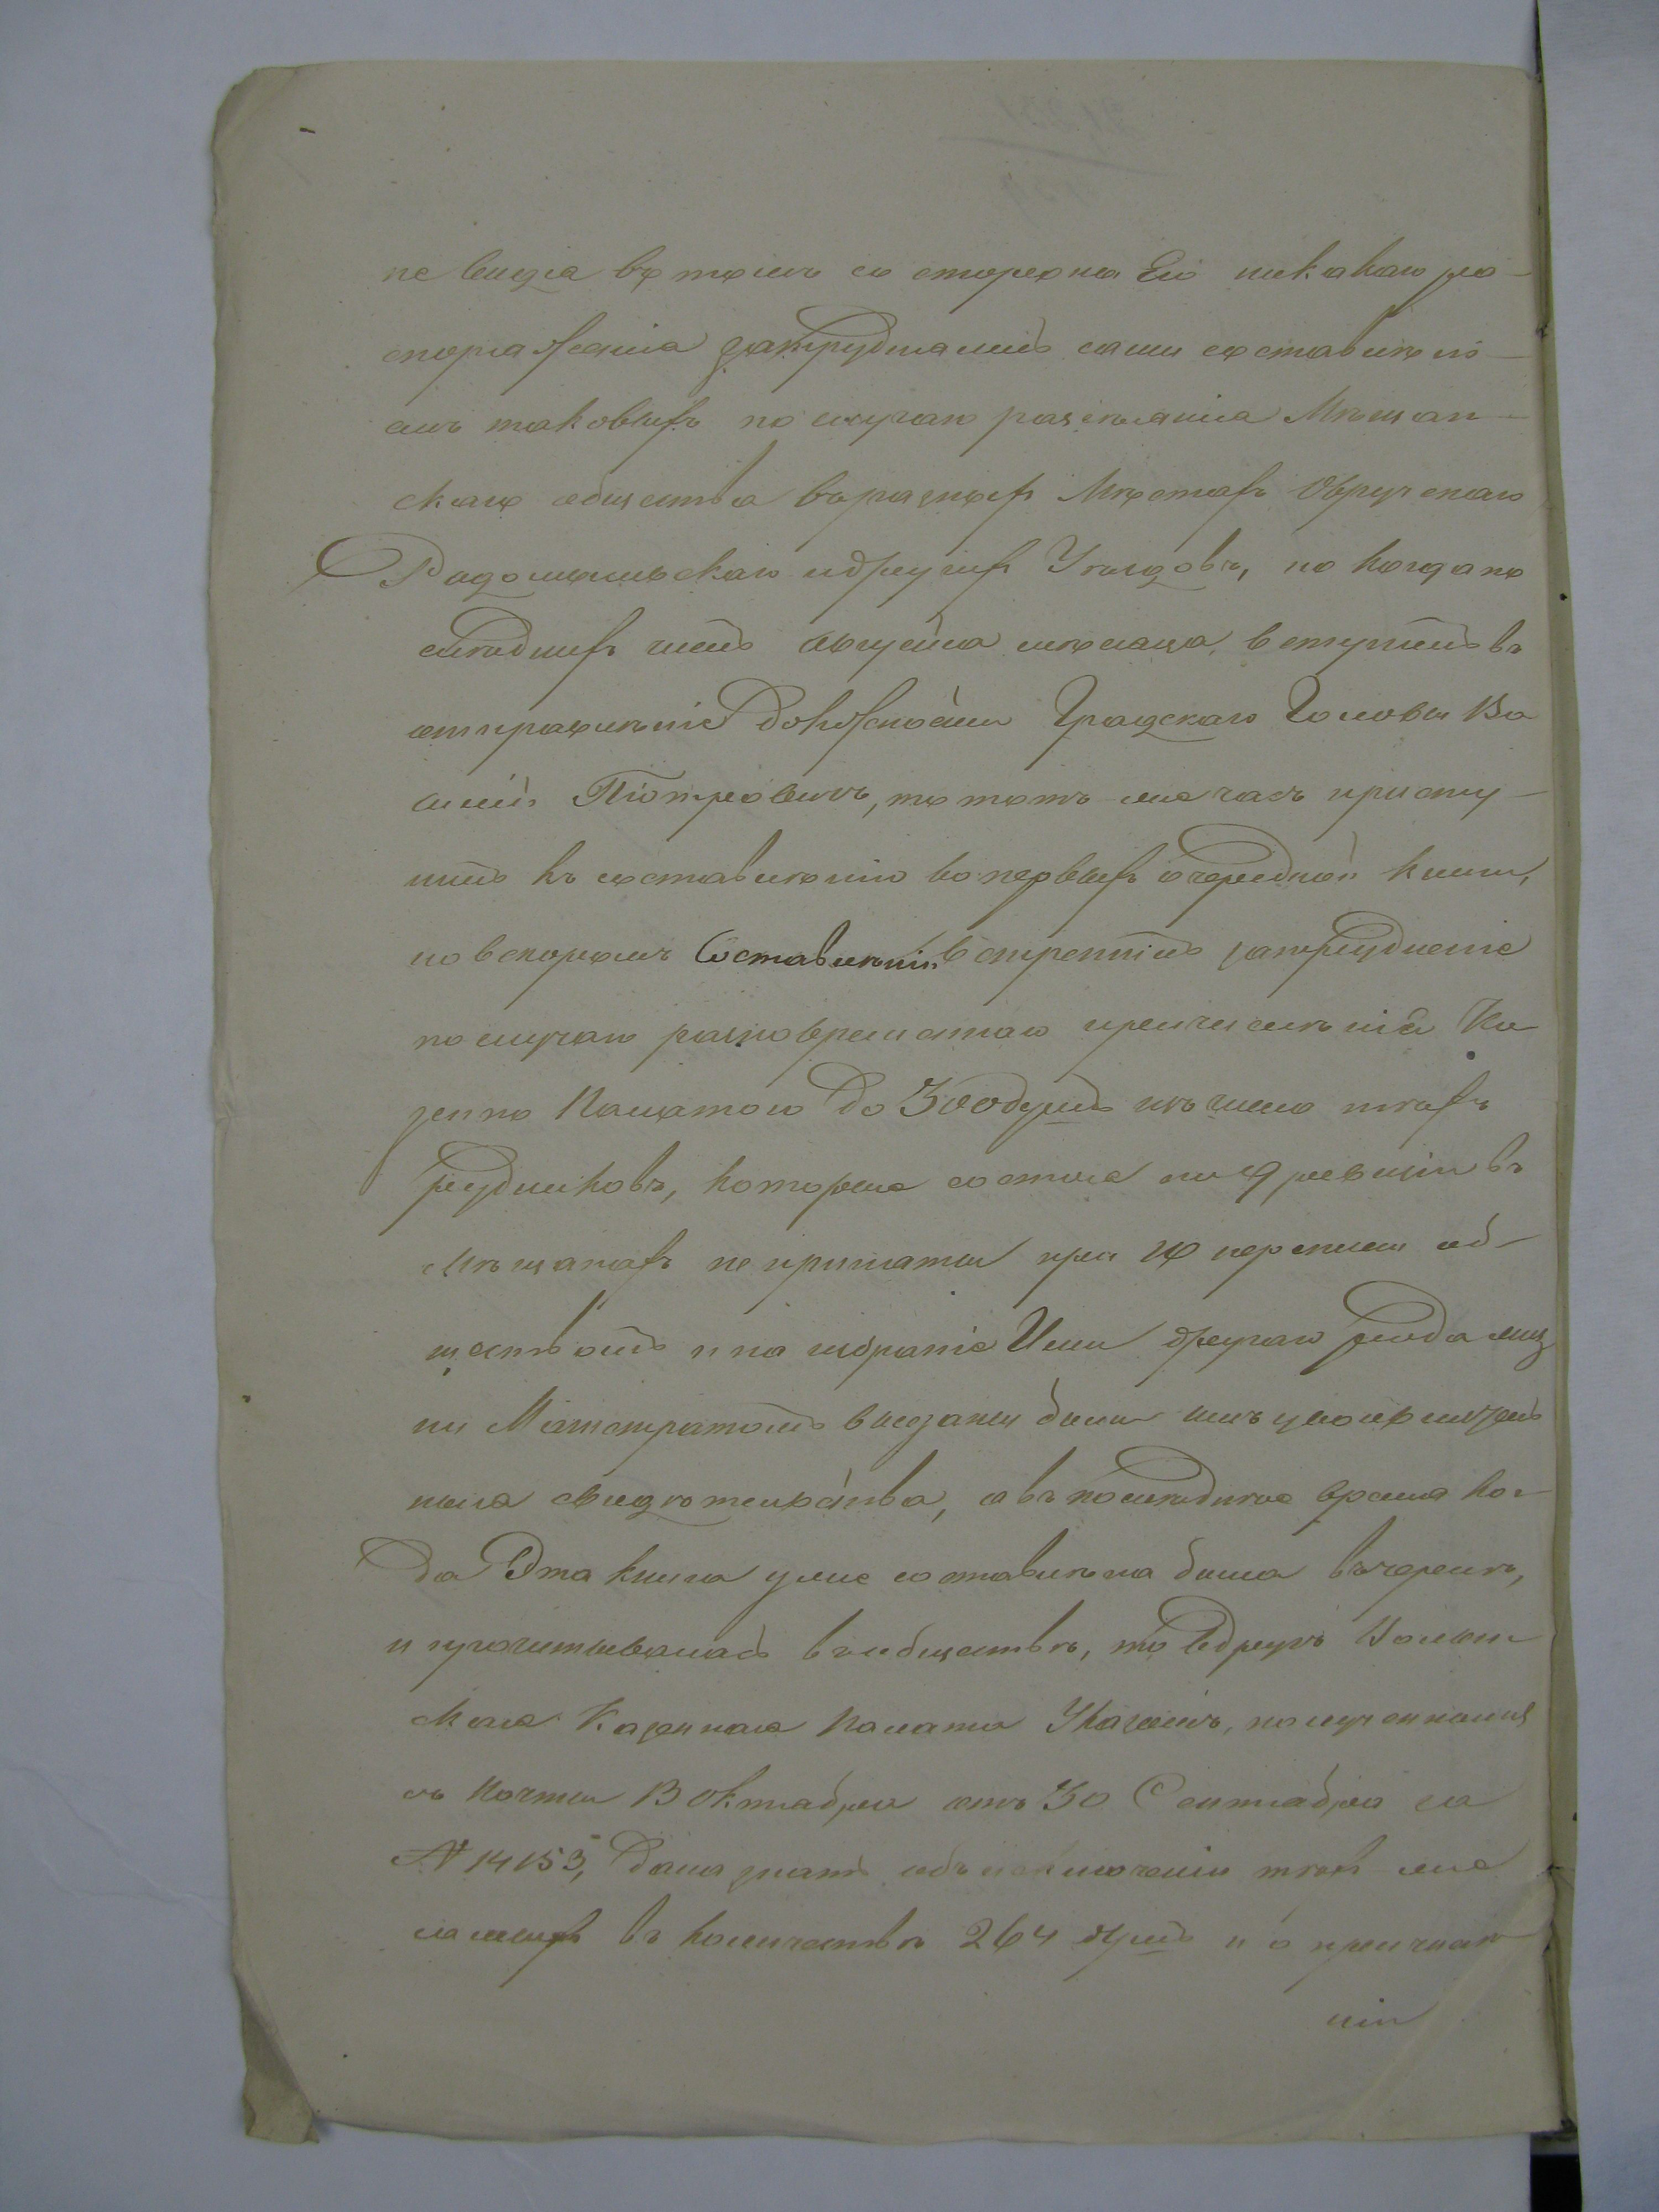 не видя въ томъ со стороны Его никакаго ра-
споряженія затруднялись сами составленіе-
мъ таковыхъ по случаю разселенія Мѣщан-
скаго общества въ разныхъ Мѣстахъ Овручскаго
Радомысльскаго и другихъ Уѣздовъ, но когда по
слѣднихъ числъ Августа мѣсяца, вступилъ въ
отправленіе должности Градскаго Головы Ва
силій Піотровичъ, то тотъ же часъ присту-
пилъ къ составленію во первыхъ очередной книги,
но вскоромъ Составленіи встретилъ затрудненіе
по случаю разновременнаго причисленія Ка
зенно Палатою до 300 душъ изъ числа тѣхъ
рудниковъ, которые состоя по 9 ревизіи въ
Мѣщанахъ не приняты при 10 переписи об-
ществомъ и на избраніе Ими другаго рода жиз
ни Магистратомъ выданы были имъ уволнитель
ныя свидѣтельства, а въ последнее время ког-
да Эта книга уже составлена была въ чернѣ,
и прочитывалась въ обществѣ, то вдругъ Волын
ская Казенная Палата Указомъ, полученнымъ
съ Почты 13 Октября отъ 30 Сентября за
№ 14153, дала знать объ исключеніи тѣхъ же
самыхъ въ количествѣ 264 душъ и о причисле
ніи